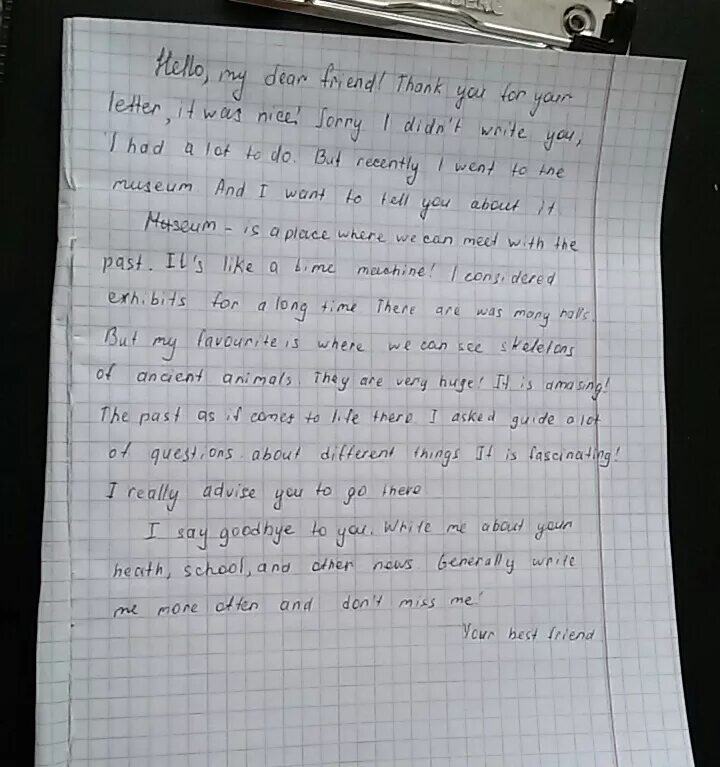 Hello, my dear friend! Thank you for your
letter, it was nice! Sorry I didn't write you,
I had a lot to do. But recently I went to the
museum And I want to tell you about it
Museum - is a place where we can meet with the
past. It's like a time machine! I considered
exhibits for a long time There are was many halls.
But my favourite is where we can see skeletons
of ancient animals. They are very huge! It is amasing!
The past as if comes to life there I asked guide a lot
of questions about different things It is fascinating!
I really advise you to go there
I say goodbye to you. Write me about your
heath, school, and other news Generally write
me more often and don't miss me!
Your best friend